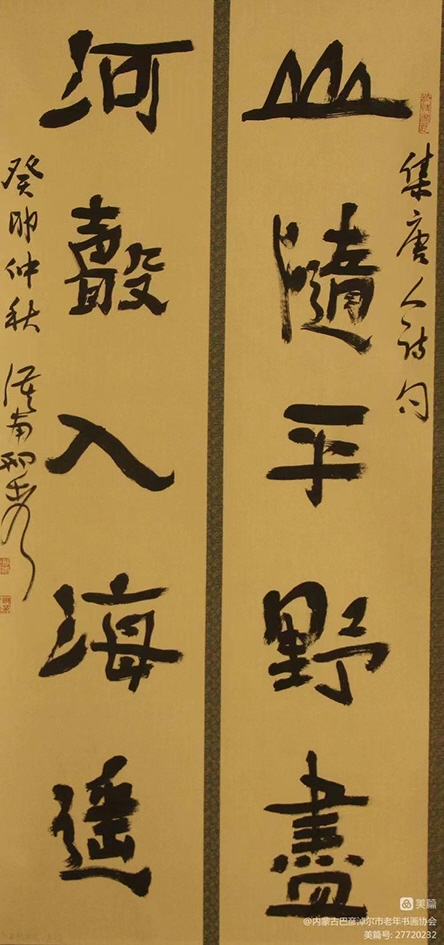 集唐人诗句
山隨平野盡
河聲入海遥
癸卯仲秋
美篇
@内蒙古巴彦淖尔市老年书画协会
美篇号: 27720232